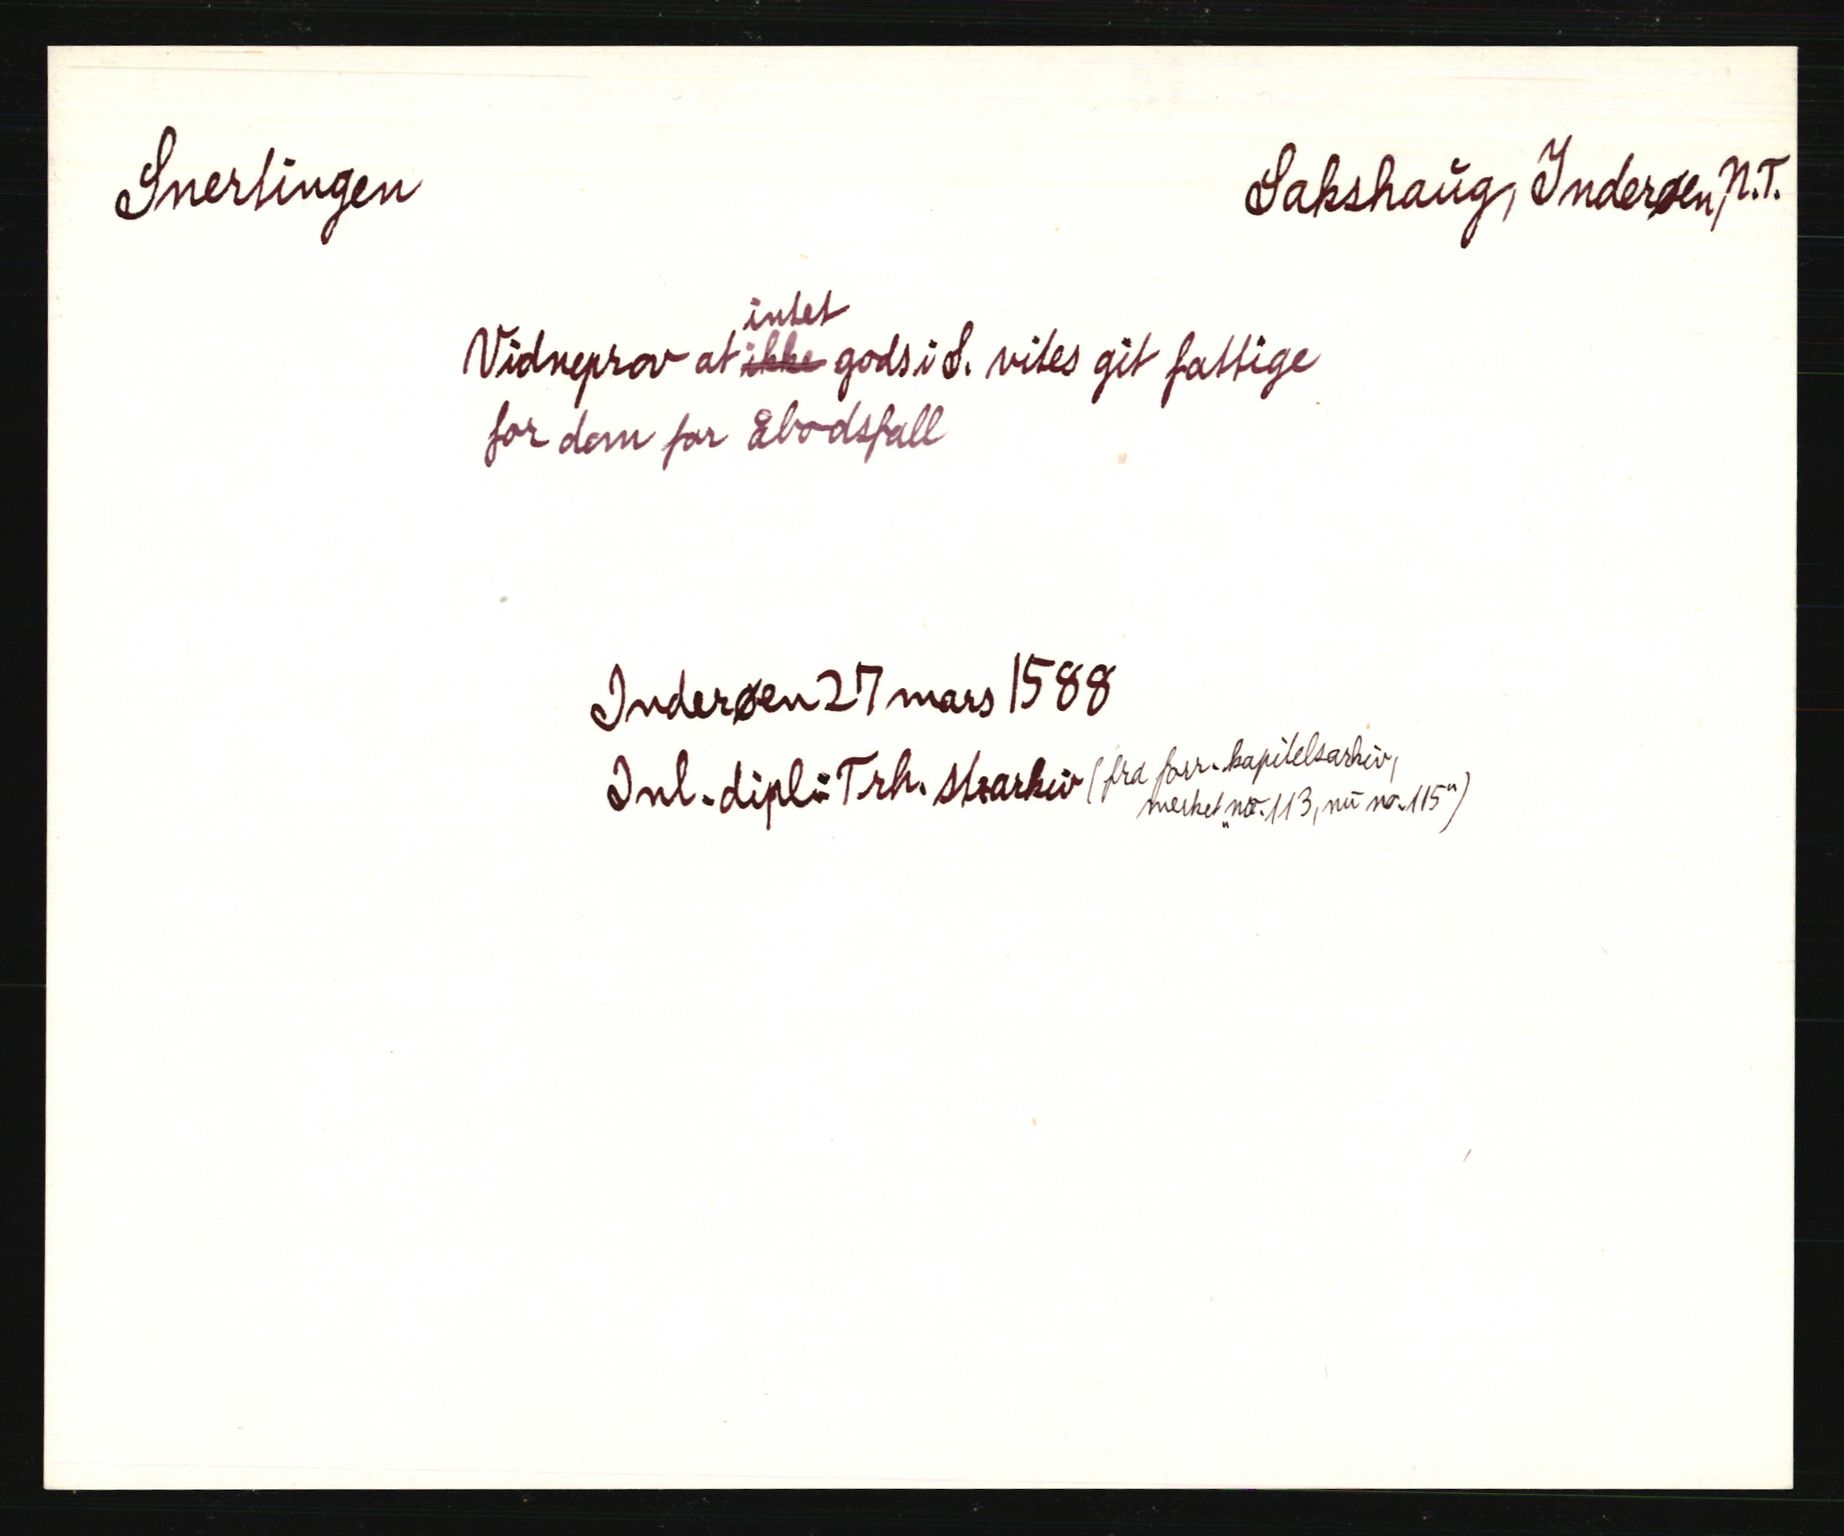 Snertingen
Sakshaug, Inderøen, N.T.
intet
Vidneprov at ikke gods i S. vites git fattige
for dem for Åbodsfall
Inderøen 27 mars 1588
Inl. dipl i Trh. st:arkiv (fra forr. kapitelsarkiv,
merket „no. 113, nu no. 115")